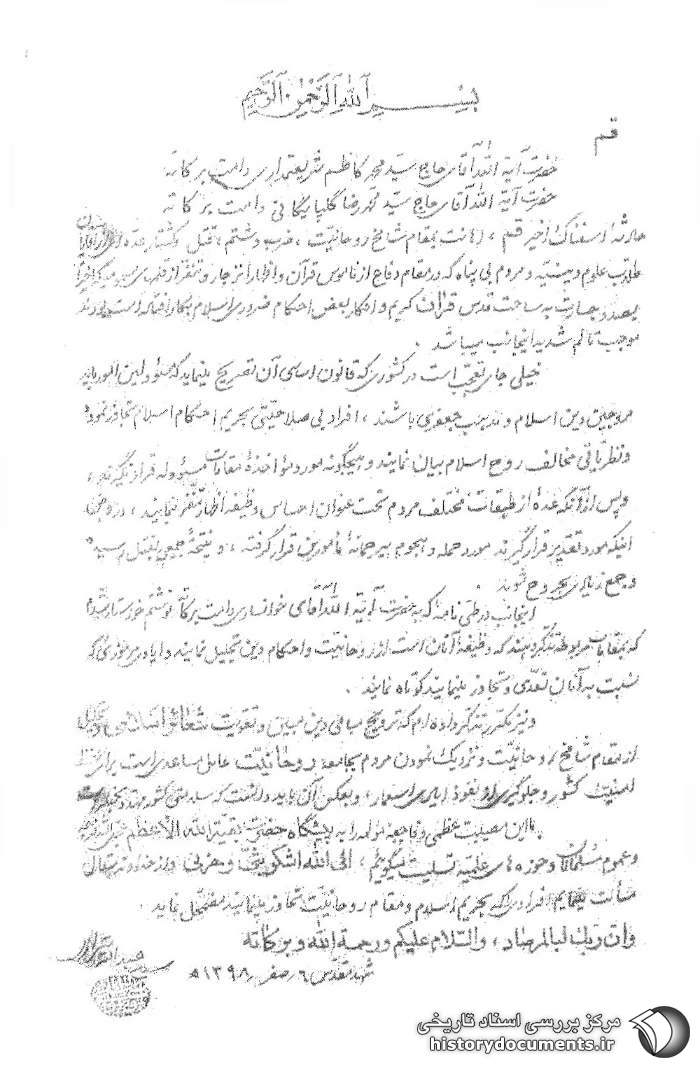 بسم الله الرحمن الرحیم
قم
حضرت آیة الله آقای حاج سید محمد کاظم شریعتمداری دامت برکاته
حضرت آیة الله آقای حاج سید محمد رضا گلپایگانی دامت برکاته
حادثه اسفناک اخیر قم ، اهانت بمقام شامخ روحانیت ، ضرب و شتم ، قتل و کشتار عده
طلاب علوم دینیه و مردم بی پناه که در مقام دفاع از ناموس قرآن و اظهار انزجار و تنفر از
و جسارت به ساحت قدس قرآن کریم و انکار بعض احکام ضروری اسلام
موجب تألم شدید اینجانب میباشد .
خیلی جای تعجب است در کشوری که قانون اساسی آن تصریح مینماید که مسئولین امور باید
مروجین دین اسلام و مذهب جعفری باشند ، افراد بی صلاحیتی بحریم احکام اسلام تجاوز نموده
و نظریاتی مخالف روح اسلام بیان نمایند و هیچگونه مورد مؤاخذۀ مقامات مسئوله قرار نگیرند ،
و پس از آنکه عدۀ از طبقات مختلف مردم تحت عنوان احساس وظیفه اظهار تنفر نمایند ، در عوض
اینکه مورد تقدیر قرار گیرند مورد حمله و هجوم بیرحمانۀ مأمورین قرار گرفته ، و نتیجة جمعی بقتل رسیده
و جمع زیادی مجروح شوند .
اینجانب در طی نامه که به حضرت آیة الله آقای خوانساری دامت برکاته نوشتم خواستار شدم
که بمقامات مربوطه تذکر دهند که وظیفۀ آنان است از روحانیت و احکام دین تجلیل نمایند و ایادی مرموزی که
نسبت به آنان تعدی و تجاوز مینمایند کوتاه نمایند .
و نیز مکرر تذکر داده ام که ترویج مبانی دین مبین و تقویت شعائر اسلامی و تجلیل
از مقام شامخ روحانیت و نزدیک نمودن مردم بجامعه روحانیت عامل مساعدی است برای حفظ
امنیت کشور و جلوگیری از نفوذ ایادی استعمار ، و بعکس آن باید دانست که
با این مصیبت عظمی و فاجعه مولمه را به پیشگاه حضرت بقیة الله الاعظم
و عموم مسلمانان و حوزه های علمیه تسلیت میگویم ، الی الله اشکو بثی و حزنی و از خداوند متعال
مسألت مینمایم افرادی که بحریم اسلام و مقام روحانیت تجاوز مینمایند مضمحل نماید .
وان ربک لبالمرصاد ، والسلام علیکم ورحمة الله وبرکاته
مشهد مقدس ٦ صفر ١٣٩٨ ه
مرکز بررسی اسناد تاریخی
historydocuments.ir